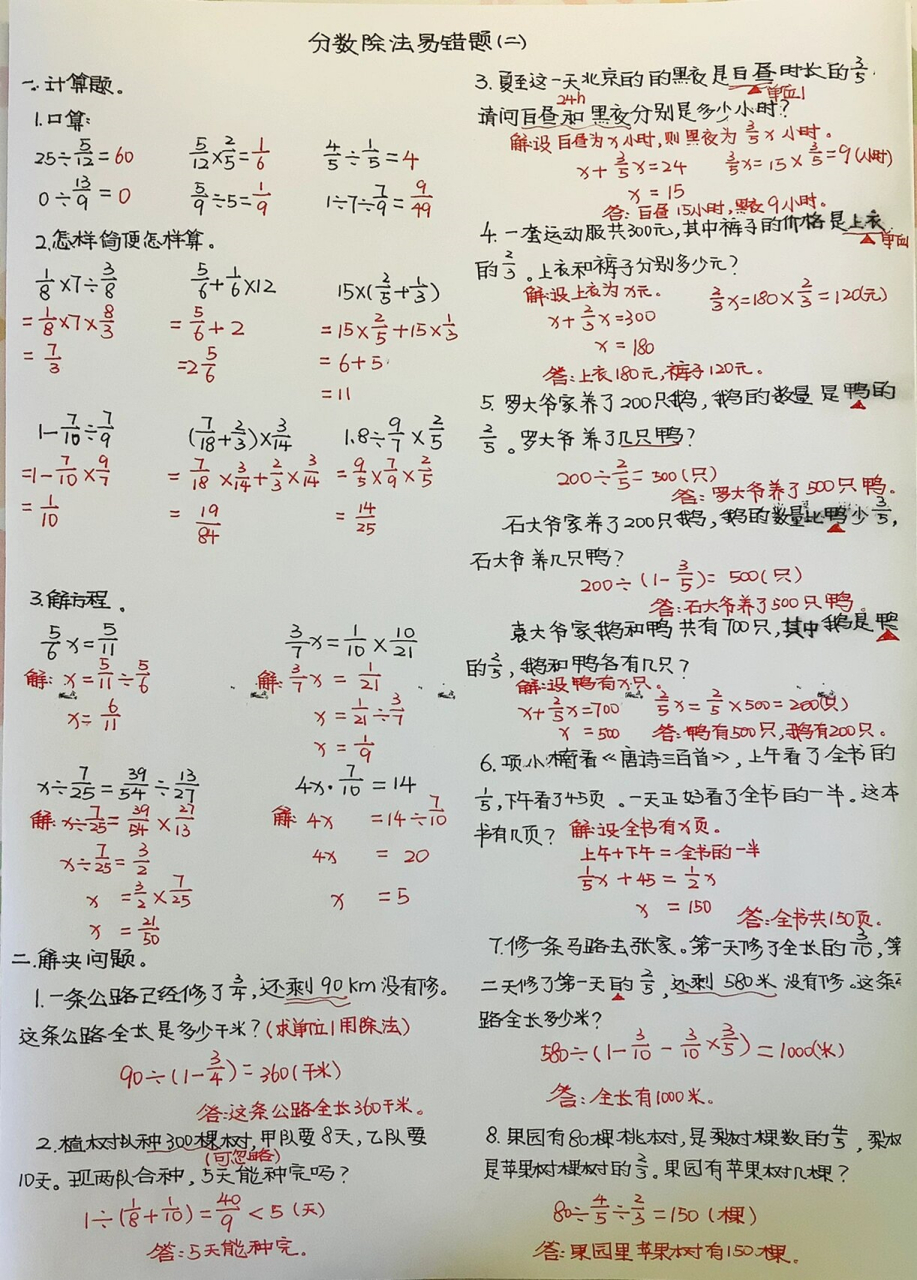 分数除法易错题(二)
一.计算题。
1.口算:
25÷5/12=60 5/12×2/5=1/6 4/5÷1/5=4
0÷13/9=0 5/9÷5=1/9 1÷7÷7/9=9/49
2.怎样简便怎样算。
1/8×7÷3/8 5/6+1/6×12 15×(2/5+1/3)
=1/8×7×8/3 =5/6+2 =15×2/5+15×1/3
=7/3 =2 5/6 =6+5
=11
1-7/10÷7/9 (7/18+2/3)×3/14 1.8÷9/7×2/5
=1-7/10×9/7 =7/18×3/14+2/3×3/14 =9/5×7/9×2/5
=1/10 =19/84 =14/25
3.解方程。
5/6x=5/11 3/7x=1/10×10/21
解:x=5/11÷5/6 解:3/7x=1/21
x=6/11 x=1/21÷3/7
x=1/9
x÷7/25=39/54÷13/27 4x·7/10=14
解:x÷7/25=39/54×27/13 解:4x=14÷7/10
x÷7/25=3/2 4x=20
x=3/2×7/25 x=5
x=21/50
二.解决问题。
1.一条公路已经修了3/4,还剩90km没有修。
这条公路全长是多少千米?(求单位1用除法)
90÷(1-3/4)=360(千米)
答:这条公路全长360千米。
2.植树队种300棵树,甲队要8天,乙队要
(可忽略)
10天。现两队合种,5天能种完吗?
1÷(1/8+1/10)=40/9<5(天)
答:5天能种完。
3.夏至这一天北京的的黑夜是白昼时长的3/5.
24h 单位1
请问白昼和黑夜分别是多少小时?
解:设白昼为x小时,则黑夜为3/5x小时。
x+3/5x=24 3/5x=15×3/5=9(小时)
x=15
答:白昼15小时,黑夜9小时。
4.一套运动服共300元,其中裤子的价格是上衣
单位1
的2/3。上衣和裤子分别多少元?
解:设上衣为x元。 2/3x=180×2/3=120(元)
x+2/3x=300
x=180
答:上衣180元,裤子120元。
5.罗大爷家养了200只鹅,鹅的数量是鸭的
2/5。罗大爷养了几只鸭?
200÷2/5=500(只)
答:罗大爷养了500只鸭。
石大爷家养了200只鹅,鹅的数量比鸭少3/5,
石大爷养几只鸭?
200÷(1-3/5)=500(只)
答:石大爷养了500只鸭。
袁大爷家鹅和鸭共有700只,其中鹅是鸭
的2/5,鹅和鸭各有几只?
解:设鸭有x只。
x+2/5x=700 2/5x=2/5×500=200(只)
x=500 答:鸭有500只,鹅有200只。
6.项小楠看《唐诗三百首》,上午看了全书的
1/5,下午看了45页。一天正好看了全书的一半。这本
书有几页? 解:设全书有x页。
上午+下午=全书的一半
1/5x+45=1/2x
x=150
答:全书共150页。
7.修一条马路去张家。第一天修了全长的3/10,第
二天修了第一天的2/5,还剩580米没有修。这条马
路全长多少米?
580÷(1-3/10-3/10×2/5)=1000(米)
答:全长有1000米。
8.果园有80棵桃树,是梨树棵数的4/5,梨树
是苹果树棵树的2/3。果园有苹果树几棵?
80÷4/5÷2/3=150(棵)
答:果园里苹果树有150棵。